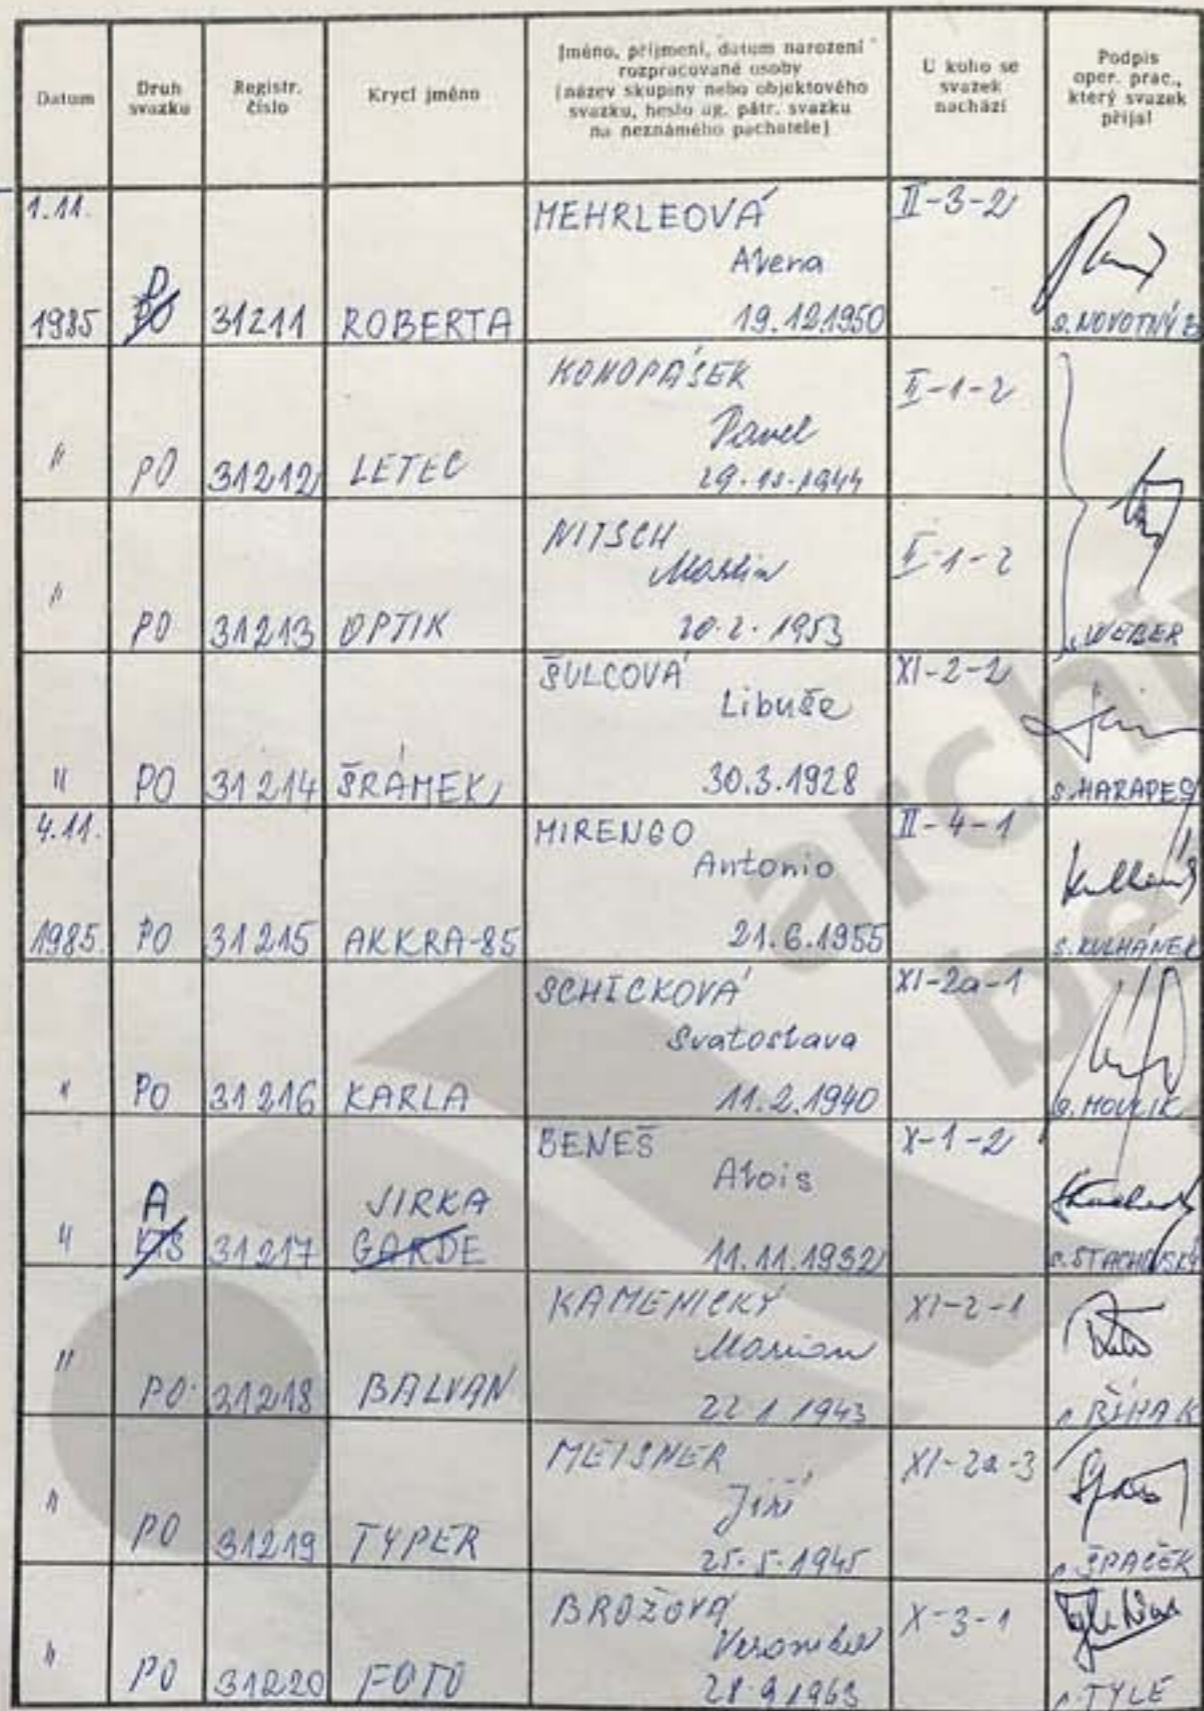 Datum
Druh
svazku
Registr.
číslo
Krycí jméno
Jméno, příjmení, datum narození
rozpracované osoby
(název skupiny nebo objektového
svazku, heslo ag. pátr. svazku
na neznámého pachatele)
U koho se
svazek
nachází
Podpis
oper. prac.,
který svazek
přijal
1.11.
1985
P
31211
ROBERTA
MEHRLEOVÁ
Alena
19.12.1950
II-3-2
s. NOVOTNÝ
"
PO
31212
LETEC
KONOPÁSEK
Pavel
II-1-2
"
PO
31213
OPTIK
NITSCH
Martin
20.2.1953
II-1-2
s. WEBER
"
PO
31214
ŠRÁMEK
ŠULCOVÁ
Libuše
30.3.1928
XI-2-2
s. HARAPES
4.11.
1985.
PO
31215
AKKRA-85
MIRENGO
Antonio
21.6.1955
II-4-1
s. KULHÁNEK
"
PO
31216
KARLA
SCHICKOVÁ
Svatoslava
11.2.1940
XI-2a-1
"
A
KTS
31217
JIRKA
GARDE
BENEŠ
Alois
11.11.1932
X-1-2
s. STACHOVSKÝ
"
PO
31218
BALVAN
KAMENICKÝ
Marian
22.1.1943
XI-2-1
s. ŘÍHA K
"
PO
31219
TYPER
MEISNER
Jiří
25.5.1945
XI-2a-3
s. ŠPAČEK
"
PO
31220
FOTO
BROŽOVÁ
Veronika
28.9.1963
X-3-1
s. TYLE
archi
be